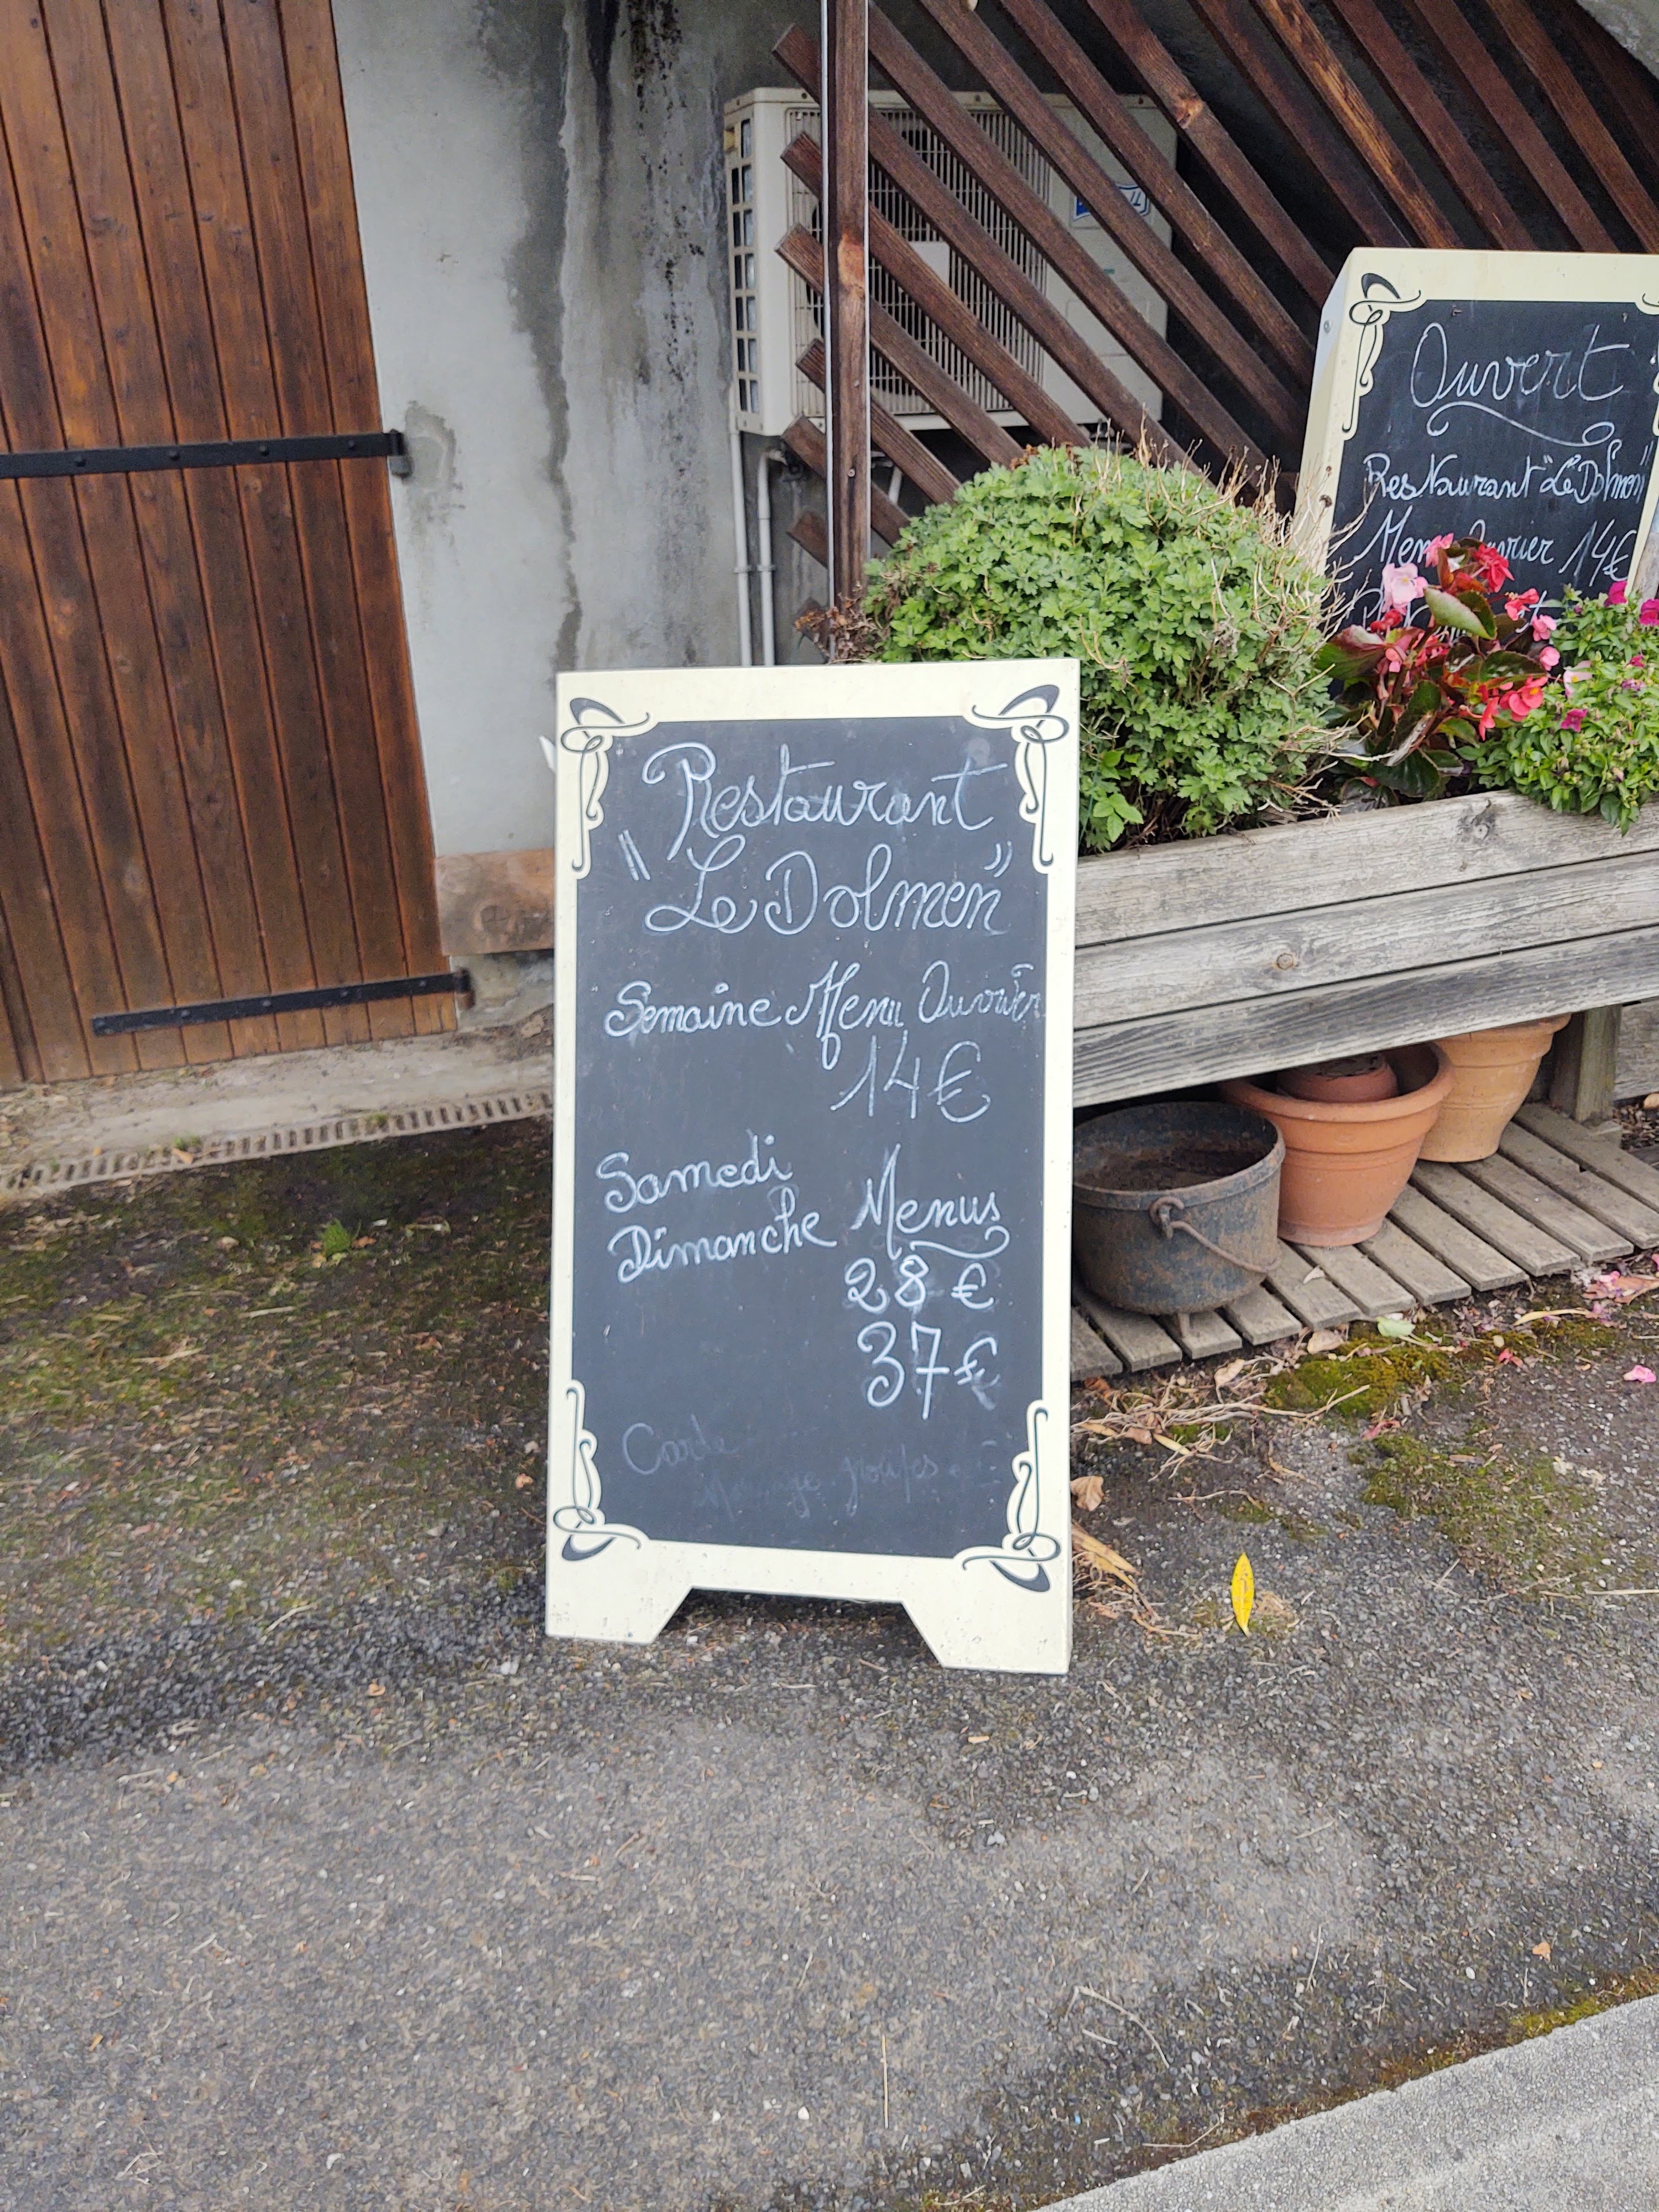 Restaurant
"Le Dolmen"
Semaine Menu Ouvrier
14€
Samedi
Dimanche Menus
28€
37€
Carte
groupes
Ouvert
Restaurant "Le Dolmen"
Menu Ouvrier 14€